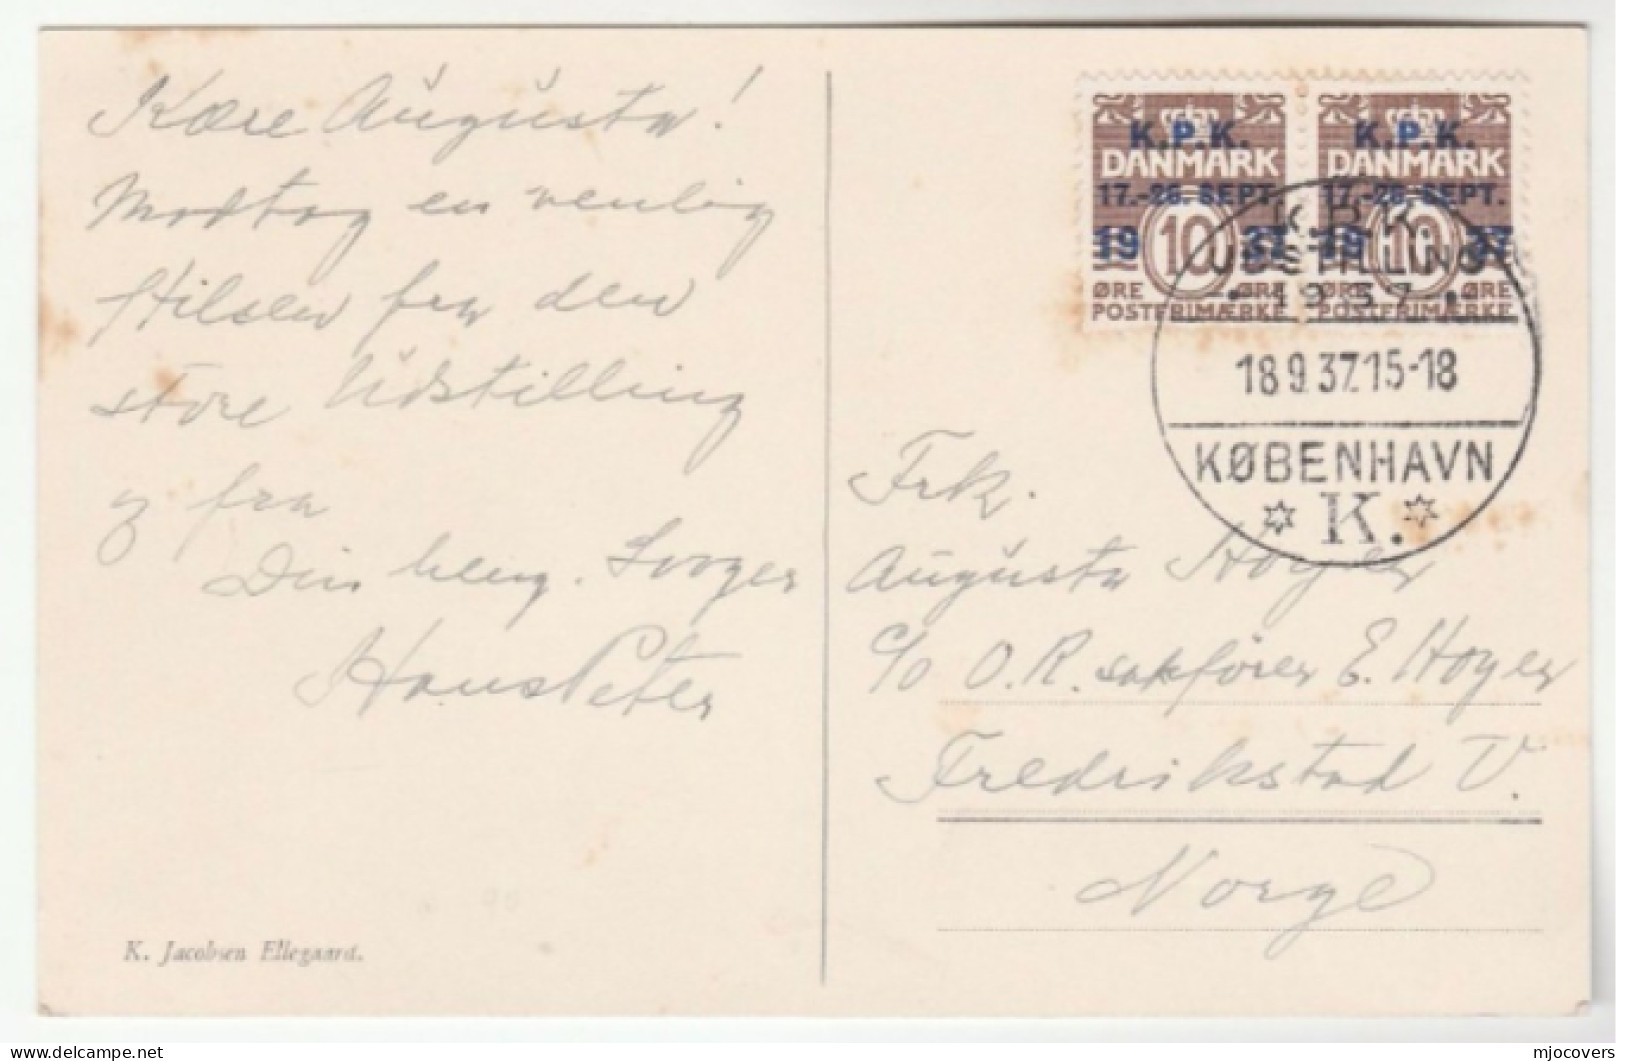 Kære Augusta!
Modtag en venlig
Hilsen fra den
store Udstilling
og fra
Din heng.
Hans Peter
K. Jacobsen Ellegaard.
K.P.K. K.P.K.
DANMARK DANMARK
17.-26. SEPT. 17.-26. SEPT.
19 10 37 19 10 37
ØRE ØRE ØRE ØRE
POSTFRIMÆRKE POSTFRIMÆRKE
K.P.K.
UDSTILLING
1937
18 9.37.15-18
KØBENHAVN
K.
Frk.
Augusta Høyer
c/o O.R. sakfører E. Høyer
Fredrikstad V.
Norge
mjocovers